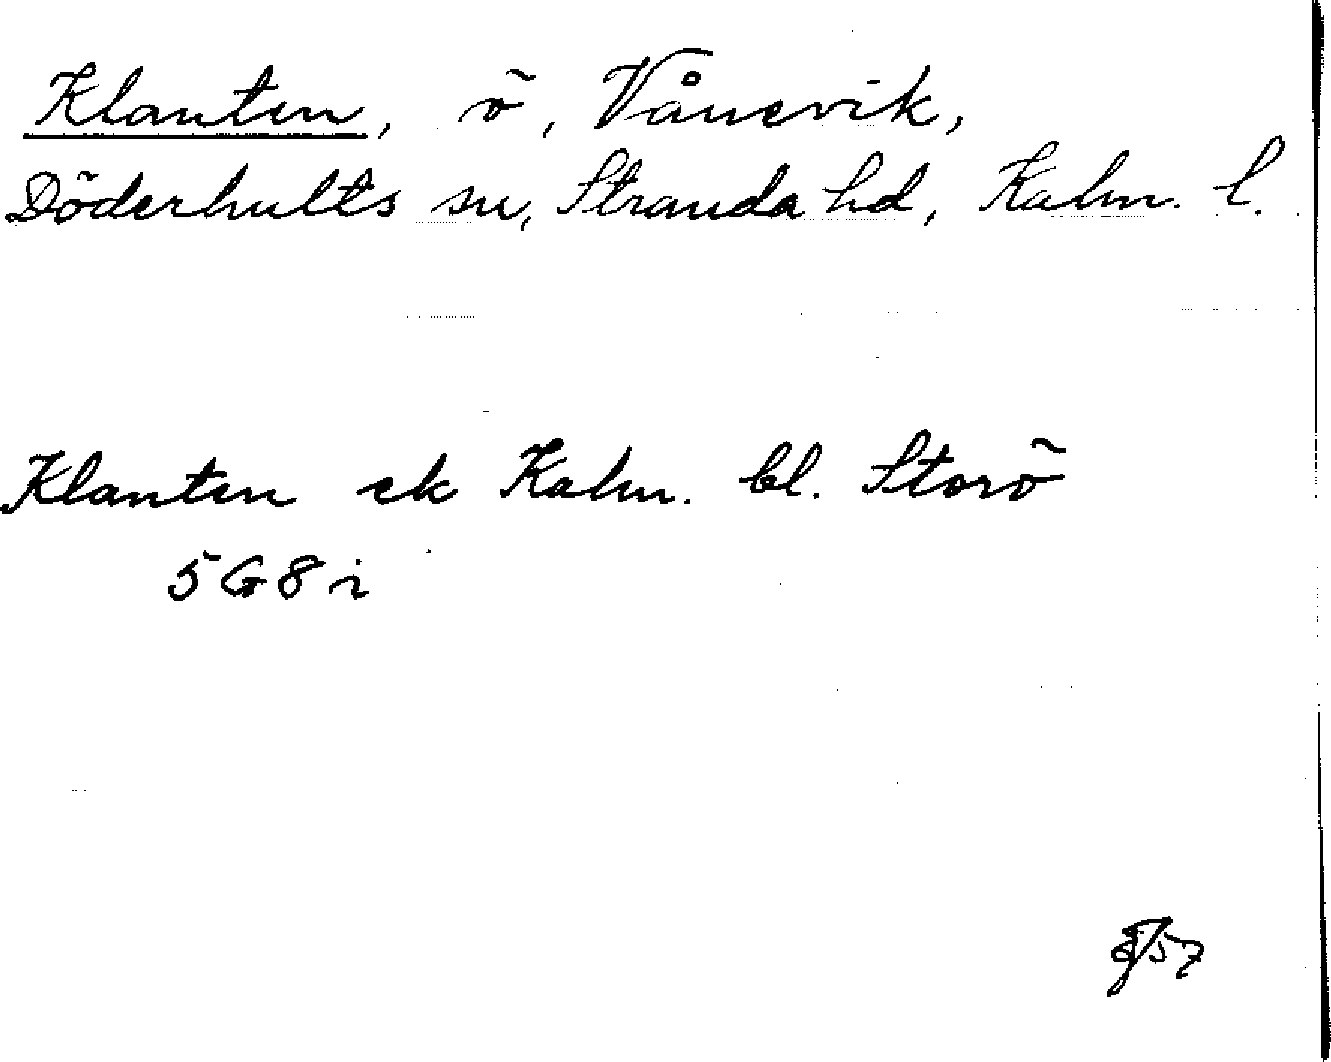 Klanten, ö, Vånevik,
Döderhults sn, Stranda hd, Kalm. l.
Klanten ek Kalm. bl. Storö
5G8i